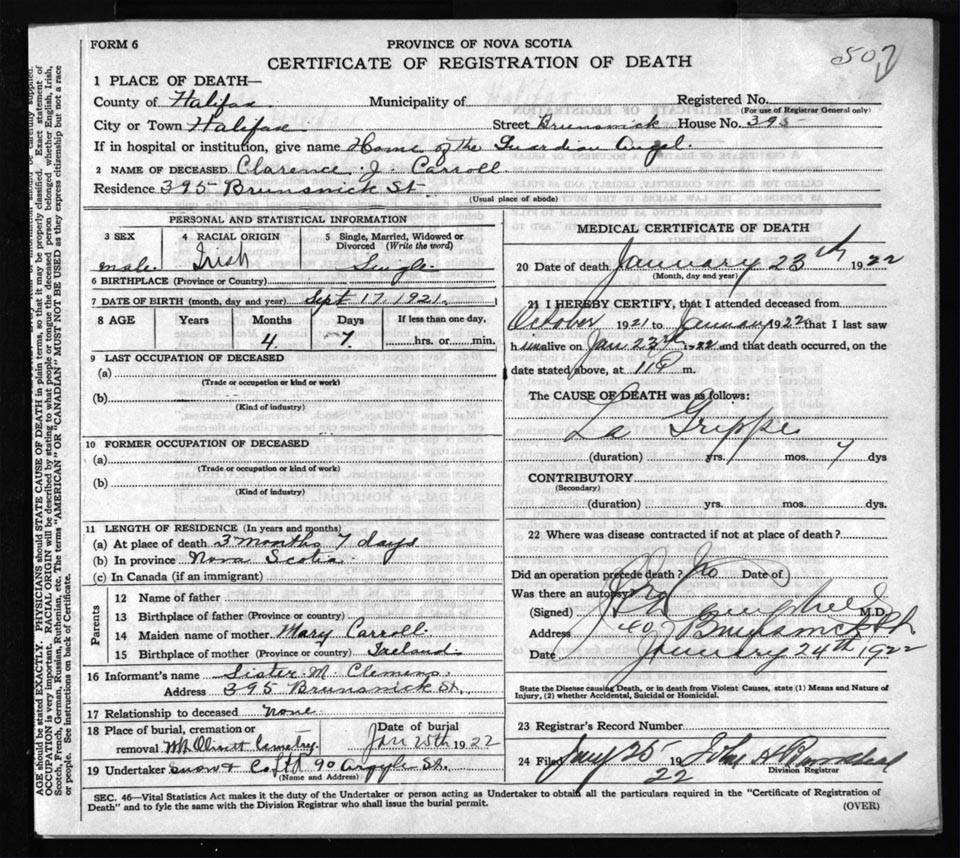 AGE should be stated EXACTLY. PHYSICIANS should STATE CAUSE OF DEATH in plain terms, so that it may be properly classified. Exact statement of
OCCUPATION is very important. RACIAL ORIGIN will be described by stating to what people or tongue the deceased person belonged whether English, Irish,
Scotch, French, German, Russian, Ruthenian, etc. The terms "AMERICAN" OR "CANADIAN" MUST NOT BE USED as they express citizenship but not a race
or people. See instructions on back of Certificate.
FORM 6
PROVINCE OF NOVA SCOTIA
507
CERTIFICATE OF REGISTRATION OF DEATH
1 PLACE OF DEATH—
County of Halifax Municipality of Registered No.
(For use of Registrar General only)
City or Town Halifax Street Brunswick House No. 395
If in hospital or institution, give name Home of the Guardian Angel
2 NAME OF DECEASED Clarence J. Carroll
Residence 395 Brunswick St
(Usual place of abode)
PERSONAL AND STATISTICAL INFORMATION
3 SEX 4 RACIAL ORIGIN 5 Single, Married, Widowed or
Divorced (Write the word)
male Irish Single
6 BIRTHPLACE (Province or Country)
7 DATE OF BIRTH (month, day and year) Sept 17 1921
8 AGE Years Months Days If less than one day,
4 7 hrs. or min.
9 LAST OCCUPATION OF DECEASED
(a)
(Trade or occupation or kind or work)
(b)
(Kind of industry)
10 FORMER OCCUPATION OF DECEASED
(a)
(Trade or occupation or kind of work)
(b)
(Kind of industry)
11 LENGTH OF RESIDENCE (In years and months)
(a) At place of death 3 months 7 days
(b) In province Nova Scotia
(c) In Canada (if an immigrant)
Parents
12 Name of father
13 Birthplace of father (Province or country)
14 Maiden name of mother Mary Carroll
15 Birthplace of mother (Province or country) Ireland
16 Informant's name Sister M. Clemens
Address 395 Brunswick St.
17 Relationship to deceased none
18 Place of burial, cremation or Date of burial
removal Mt Olivet Cemetry Jan 25th 1922
19 Undertaker Snow & Co Ltd 90 Argyle St.
(Name and Address)
MEDICAL CERTIFICATE OF DEATH
20 Date of death January 23rd 1922
(Month, day and year)
21 I HEREBY CERTIFY, that I attended deceased from
October 1921 to January 1922 that I last saw
h im alive on Jan 23rd 1922 and that death occurred, on the
date stated above, at 11 P m.
The CAUSE OF DEATH was as follows:
La Grippe
(duration) yrs. mos. 7 dys
CONTRIBUTORY
(Secondary)
(duration) yrs. mos. dys.
22 Where was disease contracted if not at place of death?
Did an operation precede death? No Date of
Was there an autopsy? No
(Signed) M.D.
Address Brunswick St
Date January 24th 1922
State the Disease causing Death, or in death from Violent Causes, state (1) Means and Nature of
Injury, (2) whether Accidental, Suicidal or Homicidal.
23 Registrar's Record Number
24 Filed Jany 25 19 22 John A
Division Registrar
SEC. 46—Vital Statistics Act makes it the duty of the Undertaker or person acting as Undertaker to obtain all the particulars required in the "Certificate of Registration of
Death" and to fyle the same with the Division Registrar who shall issue the burial permit.
(OVER)